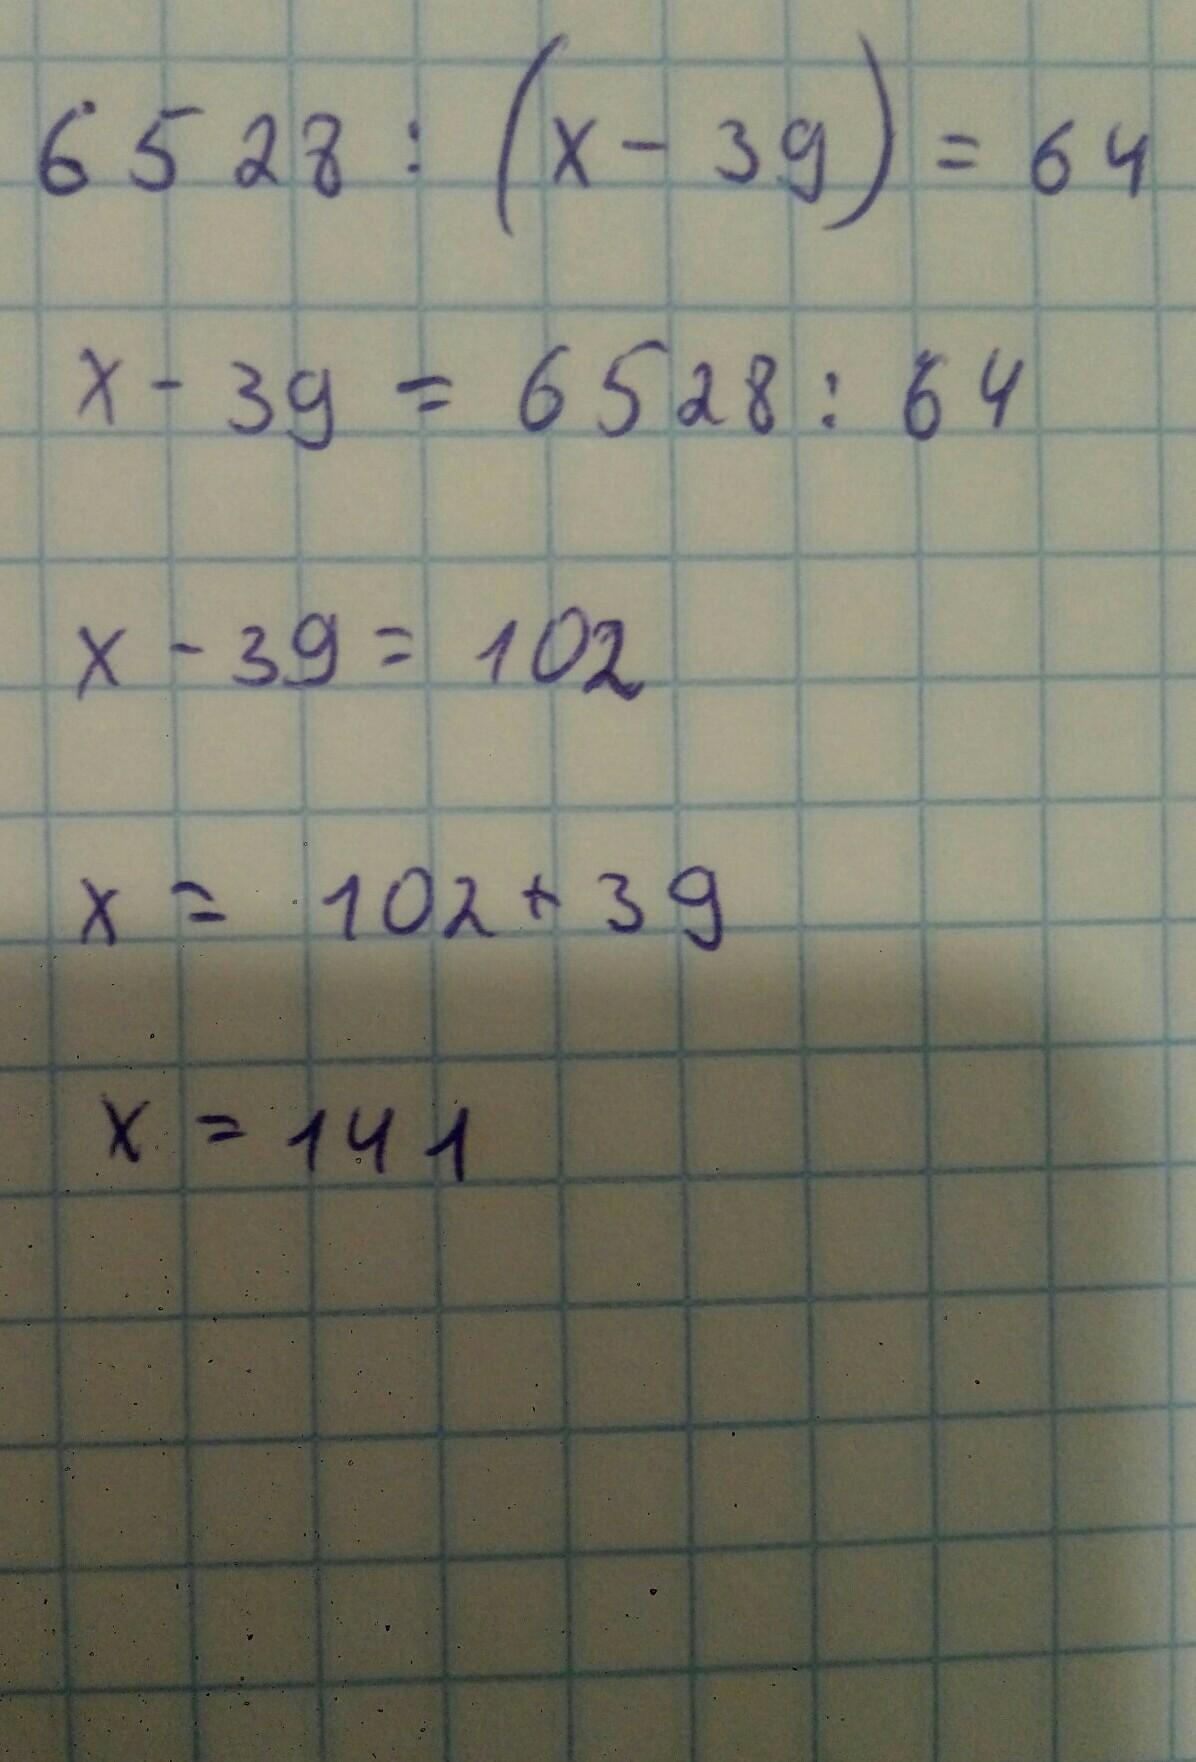 6528 : (x - 39) = 64
x - 39 = 6528 : 64
x - 39 = 102
x = 102 + 39
x = 141